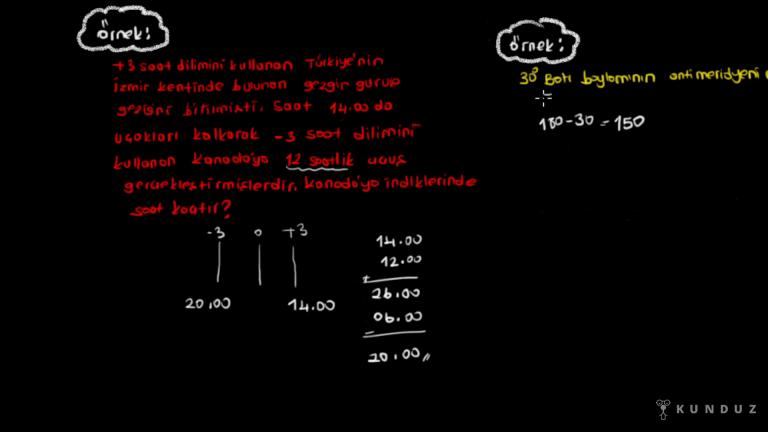 örnek:
+3 saat dilimini kullanan Türkiye'nin
İzmir kentinde bulunan gezgin gurup
gezisini bitirmişti. Saat 14.00 da
uçakları kalkarak -3 saat dilimini
kullanan Kanada'ya 12 saatlik uçuş
gerçekleştirmişlerdir. Kanada'ya indiklerinde
saat kaçtır?
-3 0 +3
20.00 14.00
14.00
12.00
+
26.00
06.00
-
20.00
örnek:
30° Batı boylamının antimeridyeni
180-30 = 150
KUNDUZ